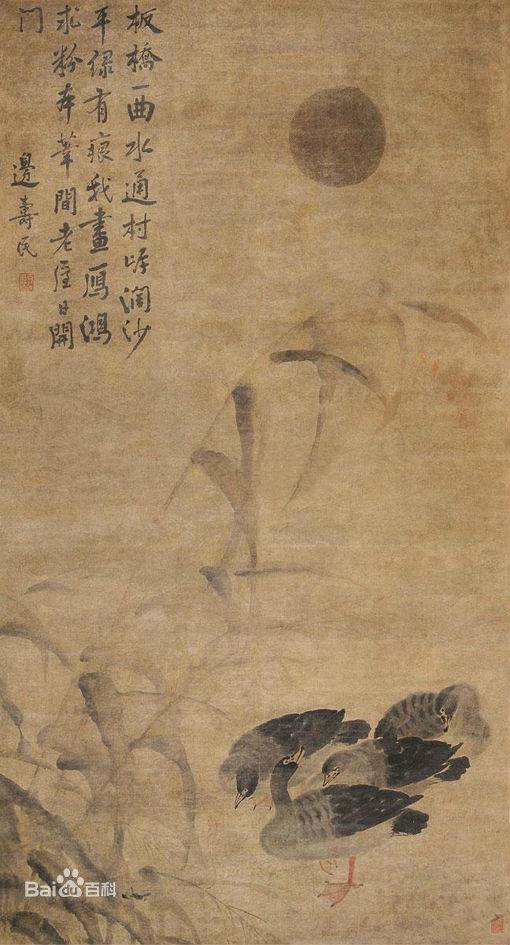 板橋一曲水通村岸闊沙
平緑有痕我畫鴈鴻
求粉本葦間老屋日開
門
邊壽民
Baidu百科